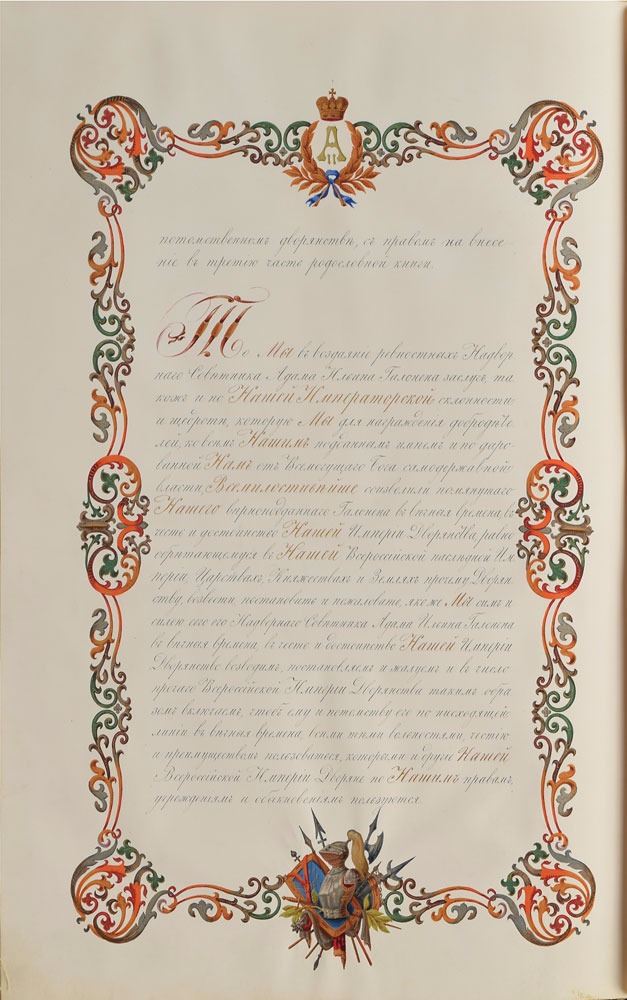 А
II
потомственномъ дворянствѣ, съ правомъ на внесе-
ніе въ третію часть родословной книги.
То Мы въ воздаяніе ревностныхъ Надвор
наго Совѣтника Адама Ильина Галонена заслугъ, та
кожъ и по Нашей Императорской склонности
и щедротѣ, которую Мы для награжденія добродѣте
лей, ко всѣмъ Нашимъ подданнымъ имѣемъ и по даро
ванной Намъ отъ Всемогущаго Бога самодержавной
власти, Всемилостивѣйше соизволили помянутаго
Нашего вѣрноподданнаго Галонена въ вѣчныя времена, въ
честь и достоинство Нашей Имперіи Дворянства, равно
обрѣтающемуся въ Нашей Всероссійской наслѣдной Им
періи, Царствахъ, Княжествахъ и Земляхъ прочему Дворян
ству, возвести, постановить и пожаловать, якоже Мы симъ и
силою сего его Надворнаго Совѣтника Адама Ильина Галонена
въ вѣчныя времена, въ честь и достоинство Нашей Имперіи
Дворянства возводимъ, постановляемъ и жалуемъ и въ число
прочаго Всероссійской Имперіи Дворянства такимъ обра
зомъ включаемъ, чтобъ ему и потомству его по нисходящей
линіи въ вѣчныя времена, всѣми тѣми вольностями, честію
и преимуществомъ пользоваться, которыми и другіе Нашей
Всероссійской Имперіи Дворяне по Нашимъ правамъ,
учрежденіямъ и обыкновеніямъ пользуются.